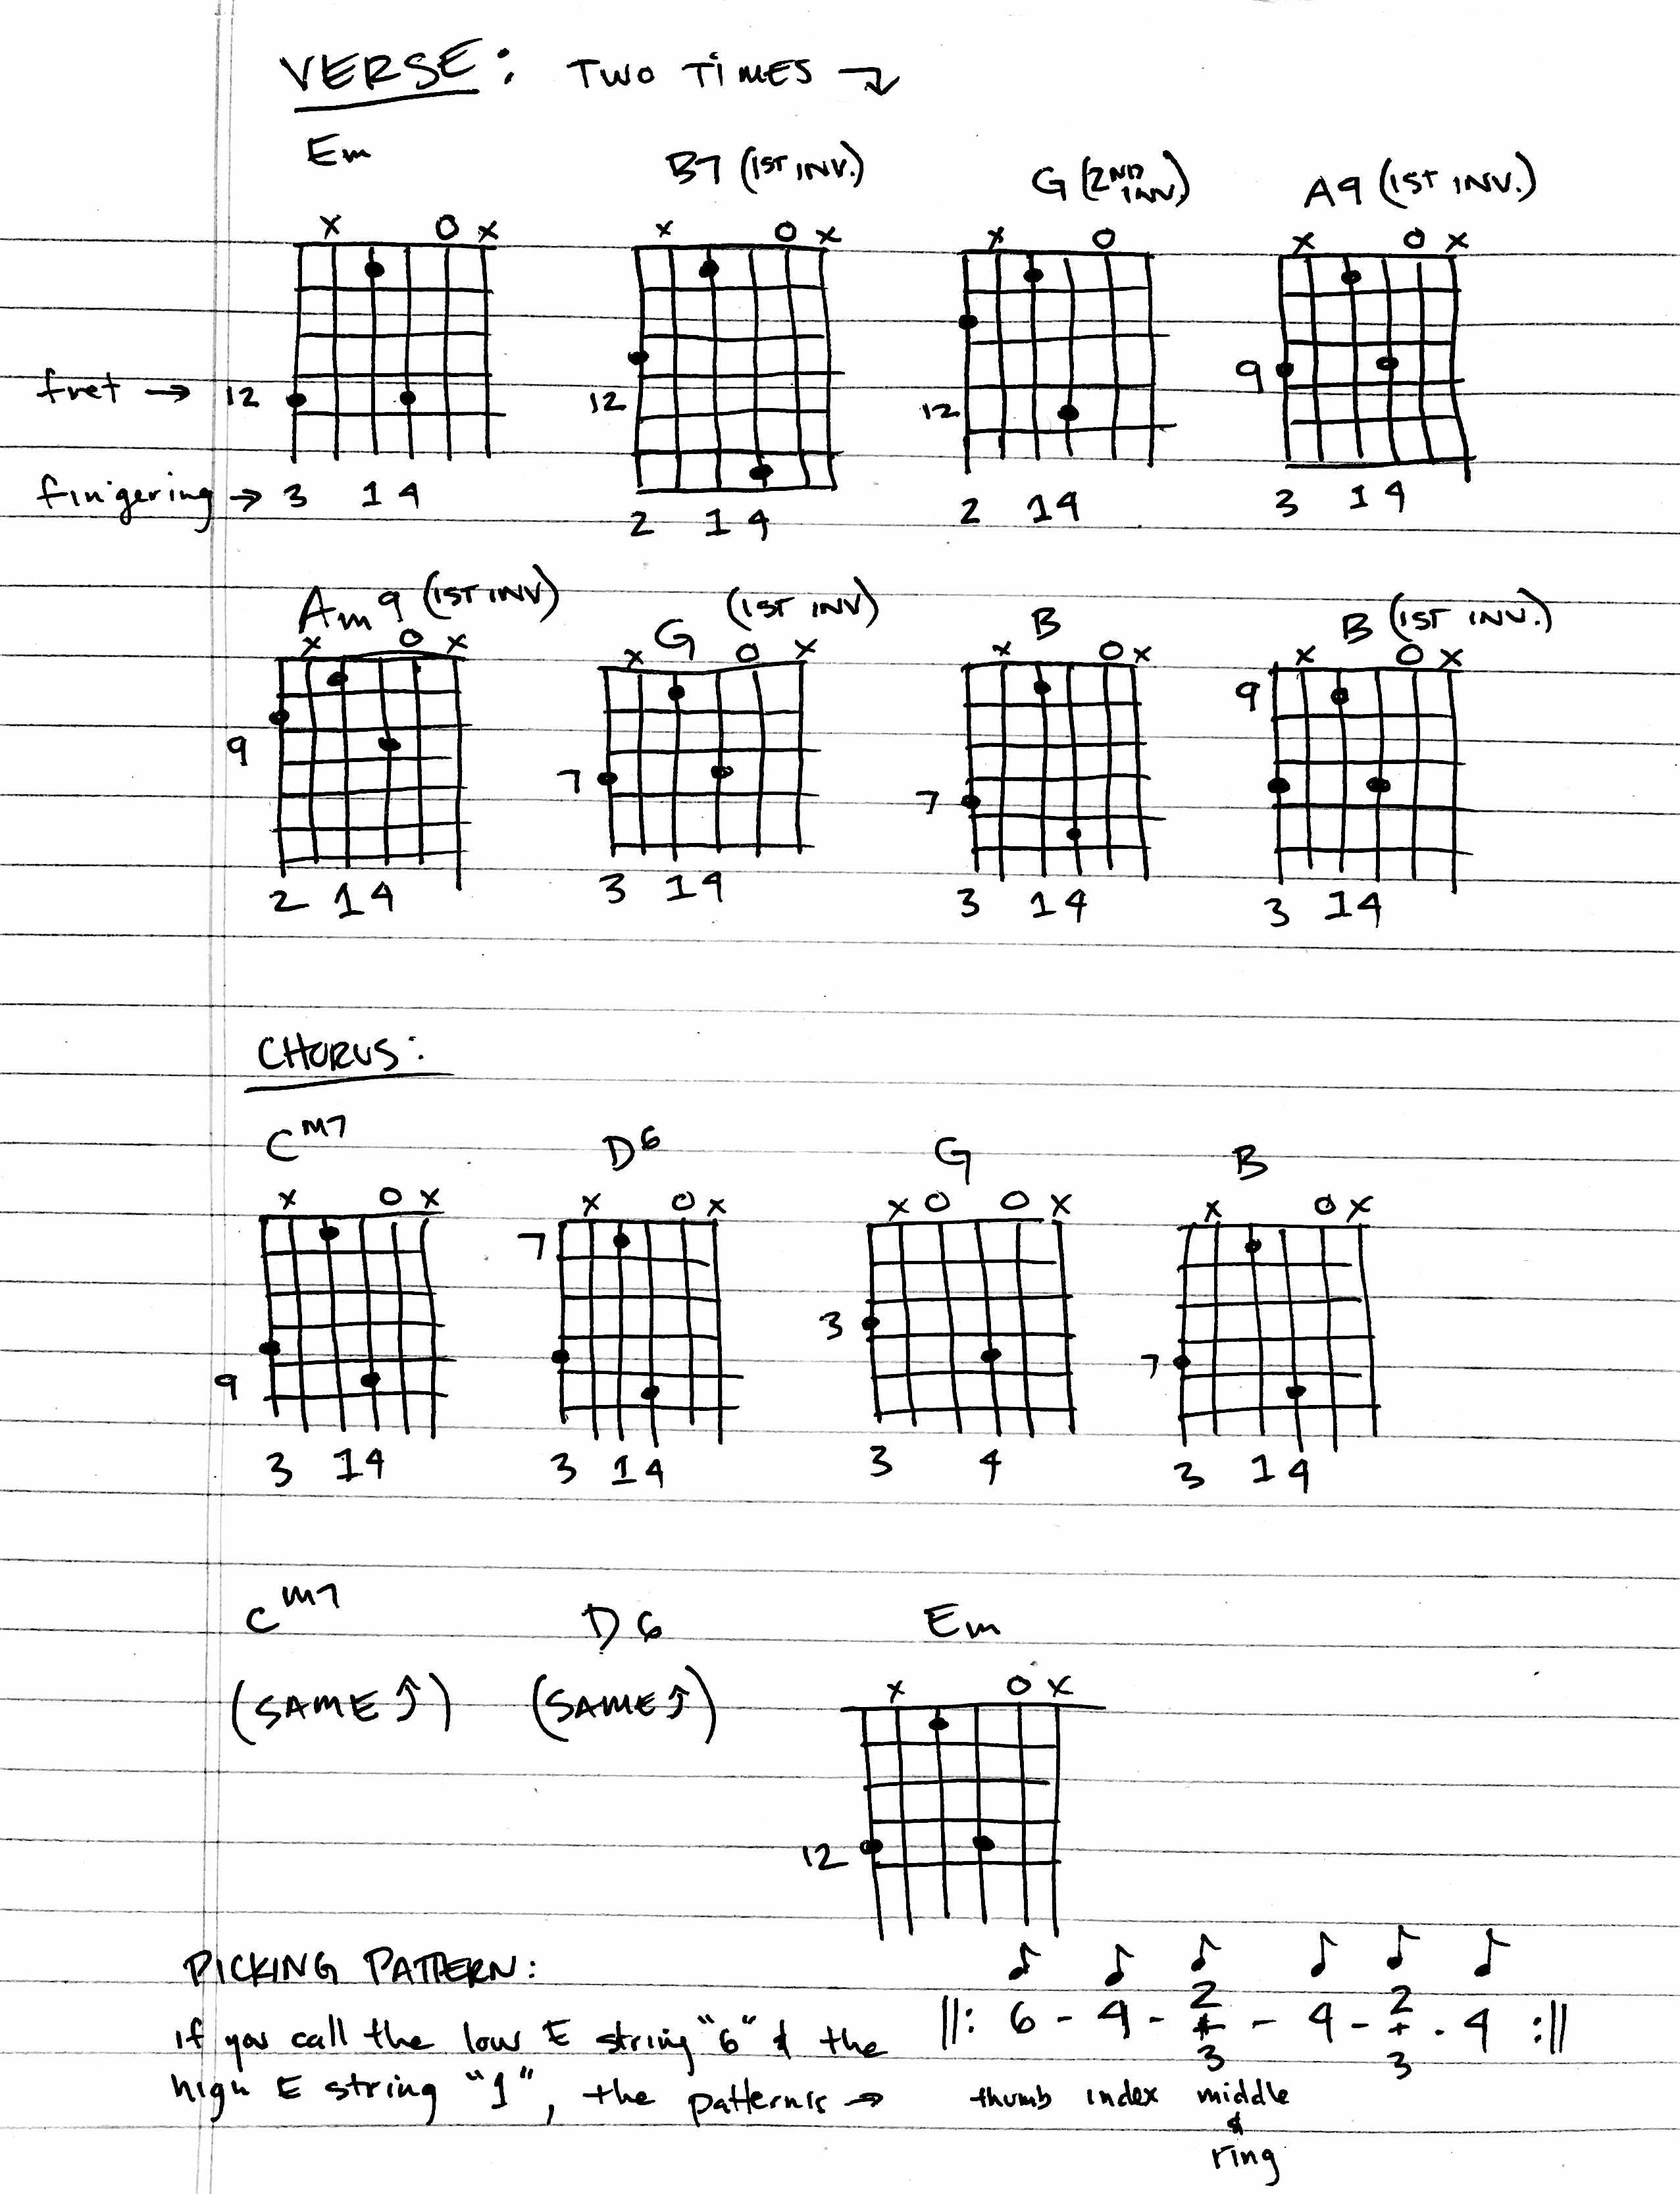 VERSE: TWO TIMES
Em B7 (1ST INV.) G (2ND INV.) A9 (1ST INV.)
x O x x O x x O x O x
fret → 12 12 12 9
fingering → 3 1 4 2 1 4 2 1 4 3 1 4
Am9 (1ST INV) G (1ST INV) B B (1ST INV.)
x O x x O x x O x x O x
9 7 7 9
2 1 4 3 1 4 3 1 4 3 1 4
CHORUS:
CM7 D6 G B
x O x x O x x O O x x O x
9 7 3 7
3 1 4 3 1 4 3 4 3 1 4
CM7 D6 Em
(SAME↑) (SAME↑) x O x
12
PICKING PATTERN:
if you call the low E string "6" & the
high E string "1", the pattern is →
||: 6 - 4 - 2 + 3 - 4 - 2 + 3 - 4 :||
thumb index middle
&
ring